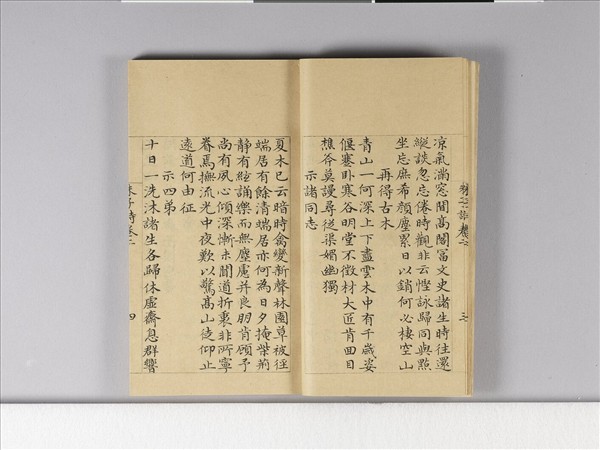 涼氣滿窓閒高閣富文史諸生時往還
縱談忽忘倦時觀非云慳詠歸同與點
坐忘庶希顏塵累日以銷何必棲空山
再得古木
青山一何深上下盡雲木中有千歲姿
偃蹇卧寒谷明堂不徵材大匠肯回目
樵斧莫謾尋從渠媚幽獨
示諸同志
夏木已云暗時禽變新聲林園草被徑
端居有餘清端居亦何為日夕掩柴荊
靜有絃誦樂而無塵慮并良朋肯顧予
尚有夙心傾深慚未聞道折衷非所寧
眷焉撫流光中夜歎以驚高山徒仰止
遠道何由征
示四弟
十日一洗沐諸生各歸休虛齋息群響